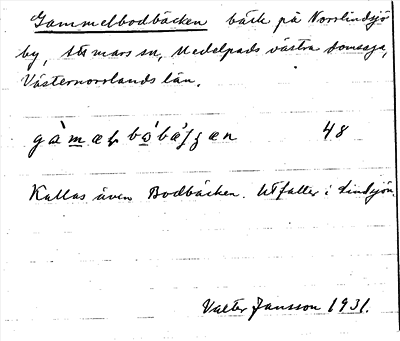 Gammelbodbäcken bäck på Norrlindsjö
by, Attmars sn, Medelpads västra domsaga,
Västernorrlands län.
48
Kallas även Bodbäcken. Utfaller i Lindsjön.
Valter Jansson 1931.